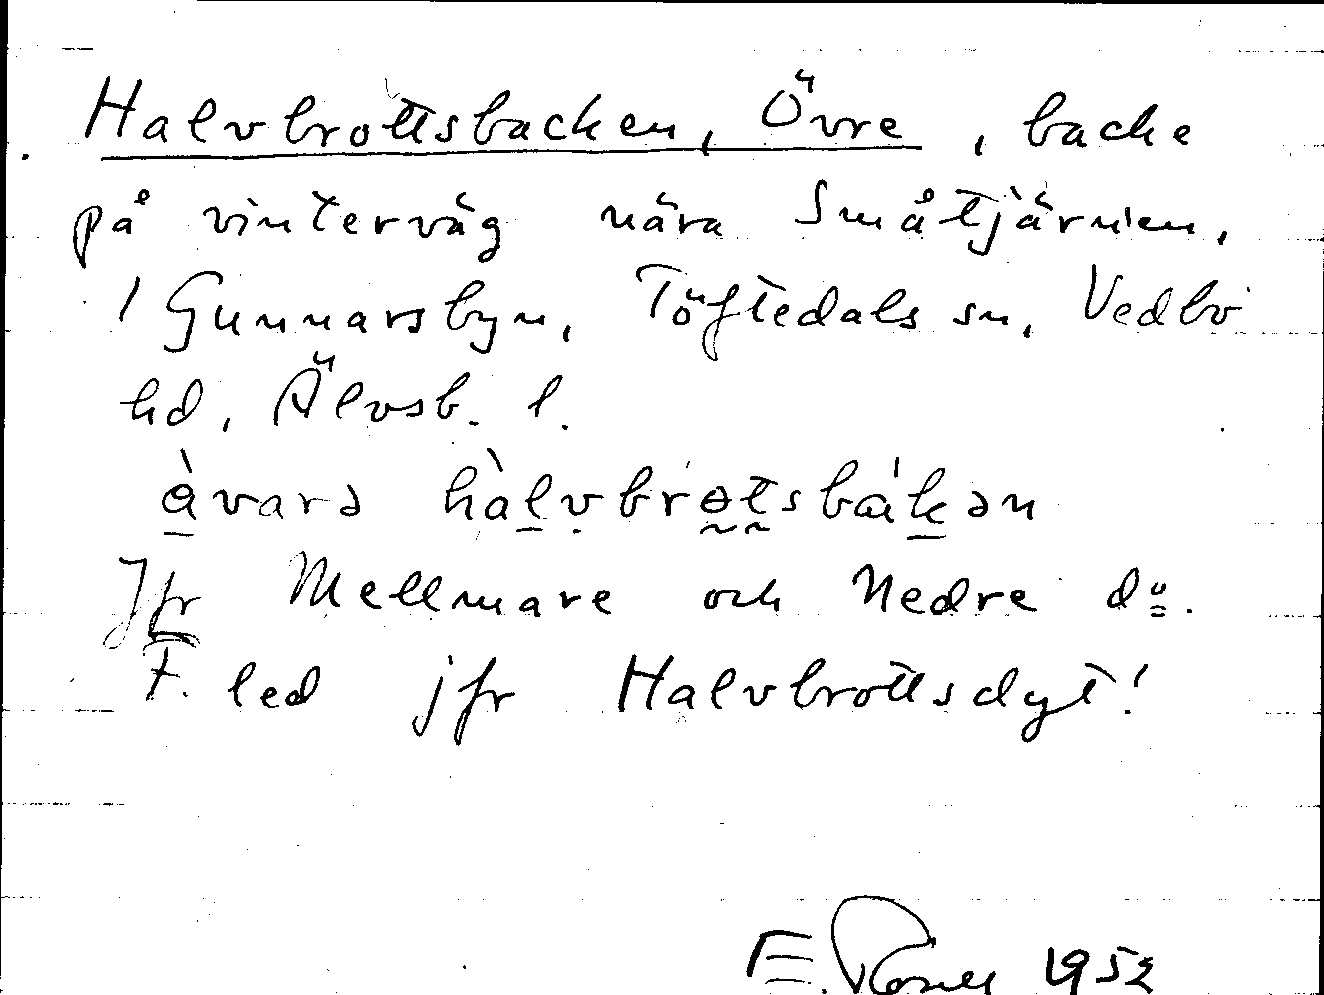 Halvbrottsbacken, Övre, backe
på vinterväg nära Småtjärnen,
i Gunnarsbyn, Töftedals sn, Vedbo
hd, Älvsb. l.
àvarə hàlvbrɵtsbákən
Jfr Mellmare och Nedre d:o.
F. led jfr Halvbrottsdyt!
E. 1952